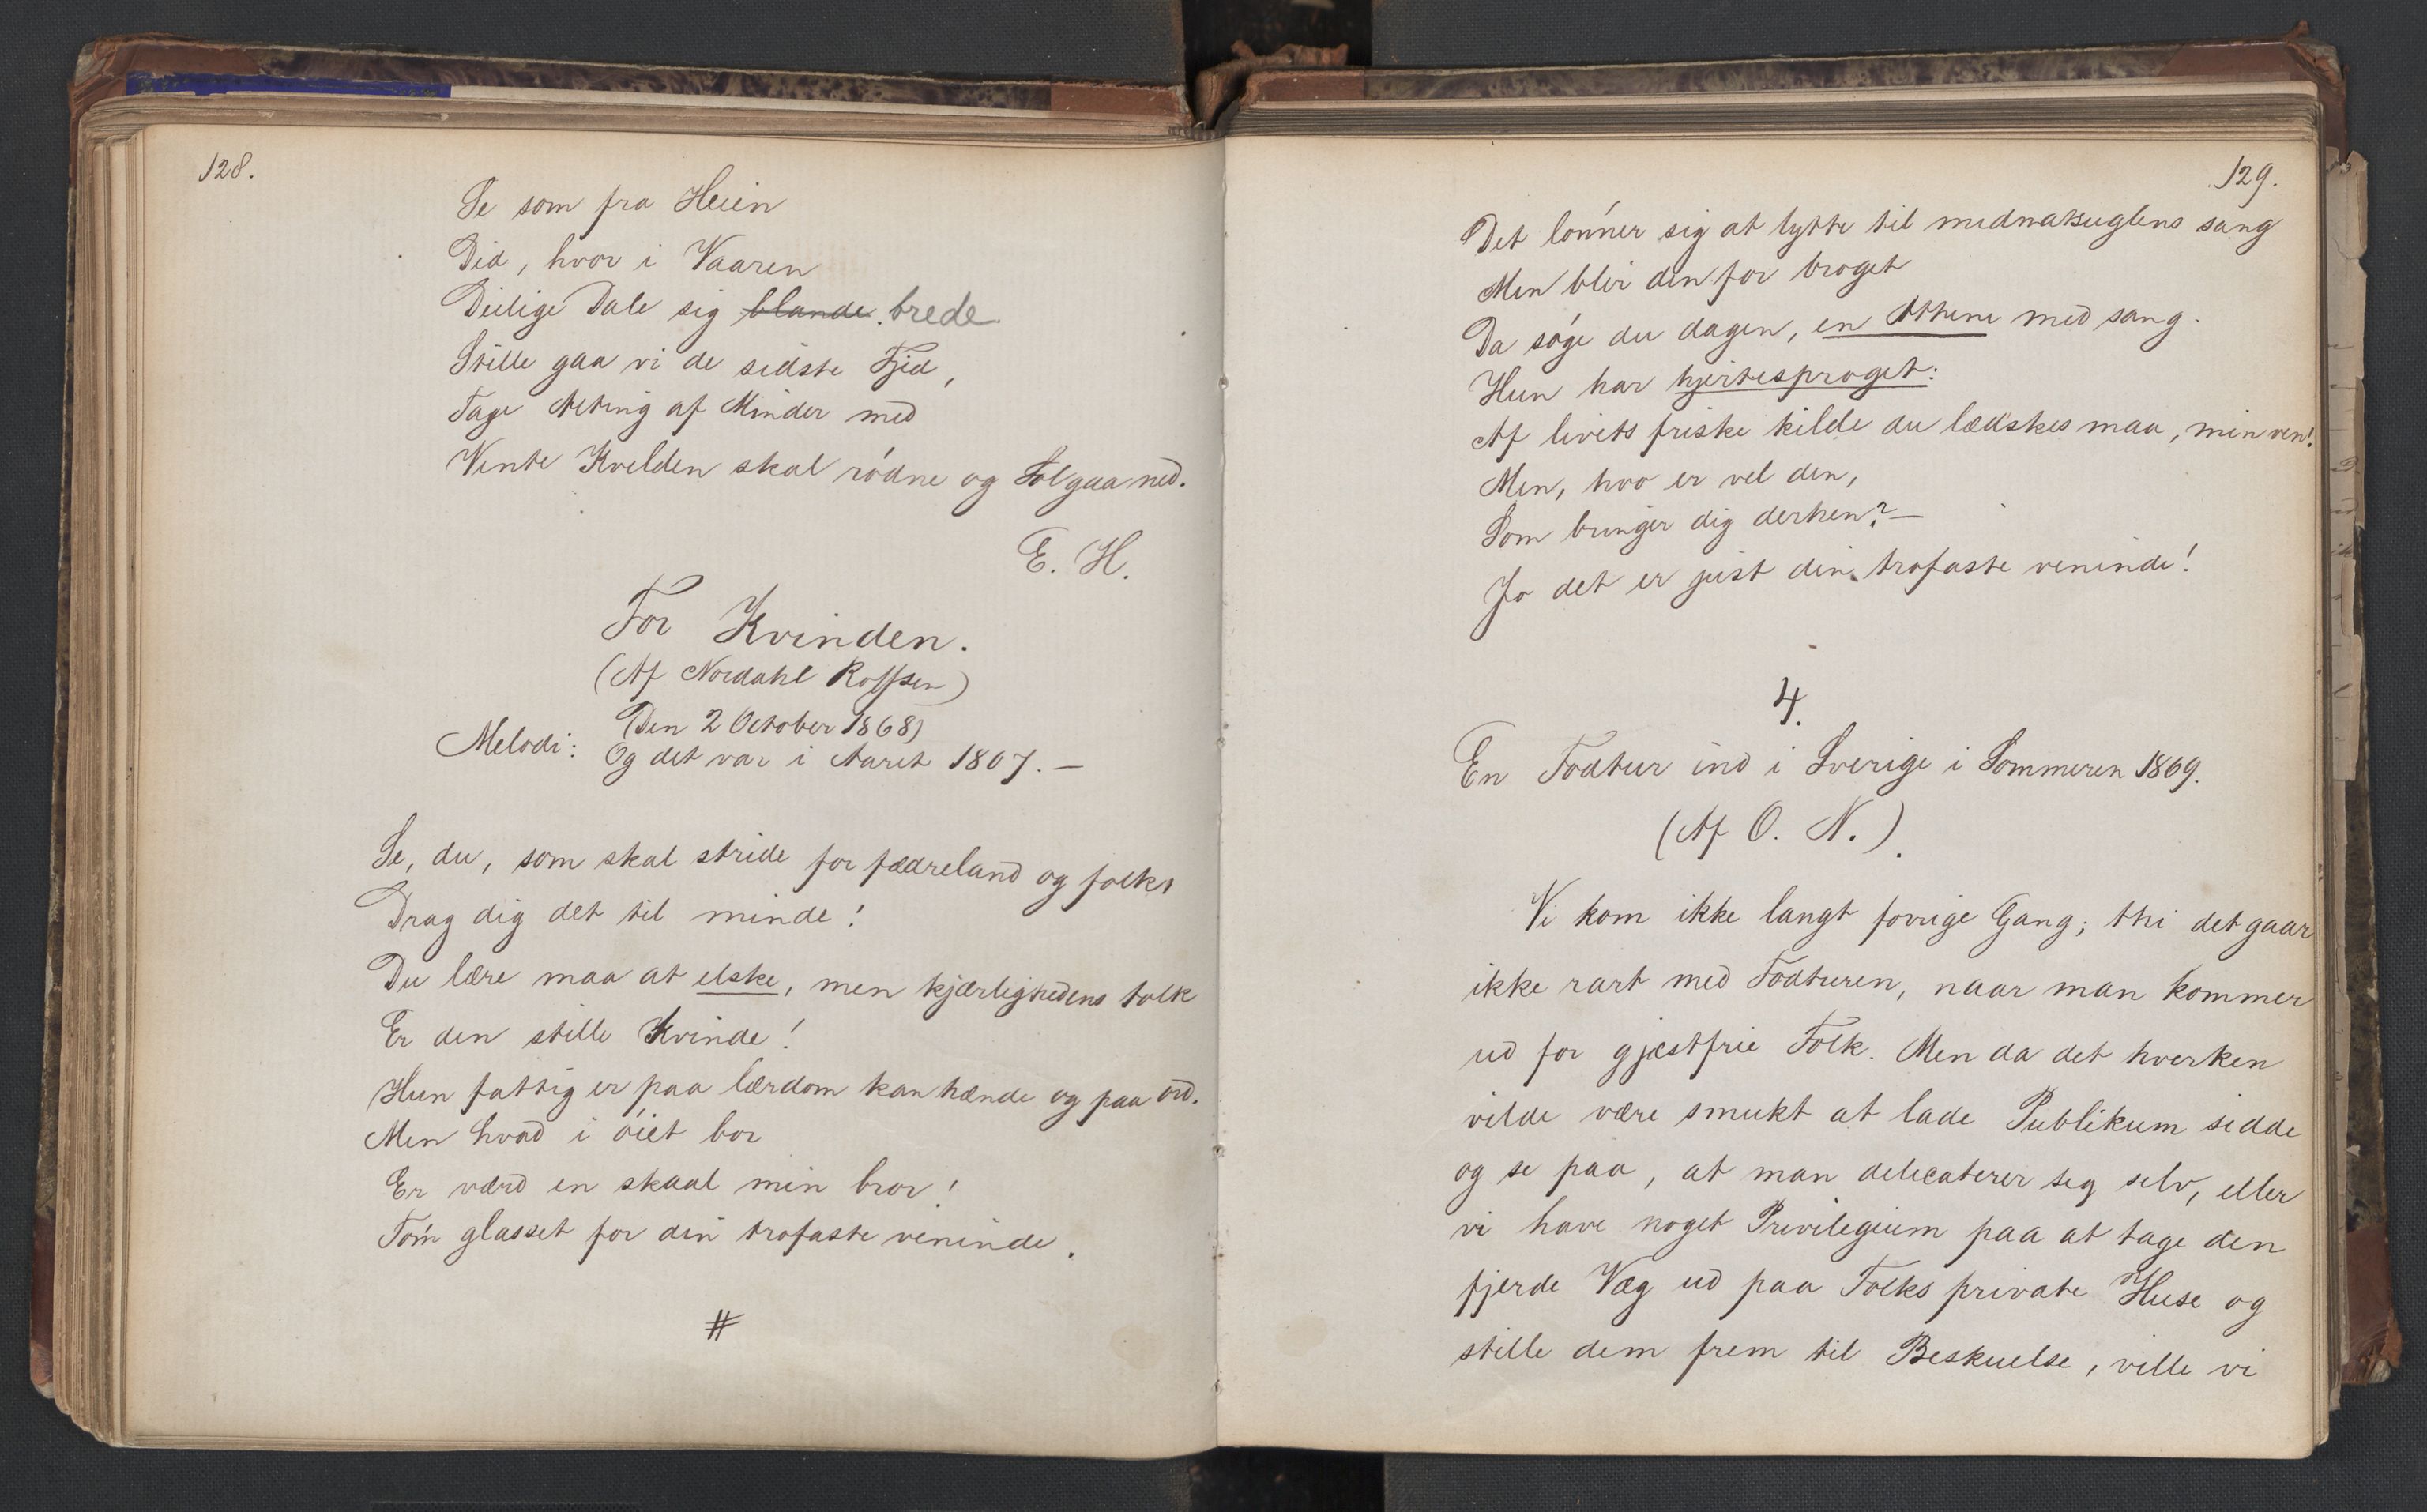 128.
Se som fra Heien
Did, hvor i Vaaren
Deilige Dale sig ~~blande~~. brede.
Stille gaa vi de sidste Fjed,
Tage Alting af Minder med
Vente Kvelden skal rødne og Sol gaa ned.
E. H.
For Kvinden.
(Af Nordahl Rolfsen)
(Den 2 October 1868)
Melodi: Og det var i Aaret 1807. —
Se, du, som skal stride for fædreland og folk,
Drag dig det til minde!
Du lære maa at elske, men kjærlighedens tolk
Er den stille Kvinde!
Hun fattig er paa lærdom kanhænde og paa ord.
Men hvad i øiet bor
Er værd en skaal min bror!
Tøm glasset for din trofaste veninde.
#
129.
Det lønner sig at lytte til midnatsuglens sang
Men blir den for broget
Da søge du dagen, en Athene med sang.
Hun har hjertesproget:
Af livets friske kilde du lædskes maa, min ven!
Men, hvo er vel den,
Som bringer dig derhen? —
Jo det er just din trofaste veninde!
4.
En Fodtur ind i Sverige i Sommeren 1869.
(Af O. N.).
Vi kom ikke langt forrige Gang; thi det gaar
ikke rart med Fodturen, naar man kommer
ud for gjæstfrie Folk. Men da det hverken
vilde være smukt at lade Publikum sidde
og se paa, at man delicaterer seg selv, eller
vi have noget Privilegium paa at tage den
fjerde Væg ud paa Folks private Huse og
stille dem frem til Beskuelse, ville vi